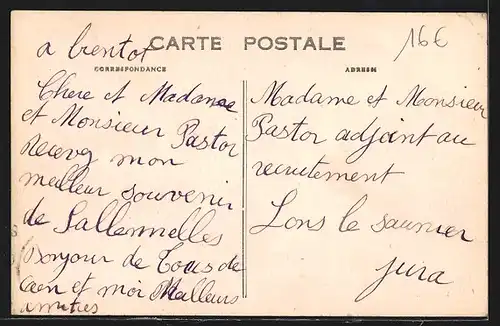 a bientot
CARTE POSTALE
16€
CORRESPONDANCE
ADRESSE
Chere et Madame
et Monsieur Pastor
Recevez mon
meilleur souvenir
de Sallennelles
Bonjour de Tous de
caen et moi Meilleurs
amities
Madame et Monsieur
Pastor adjoint au
recrutement
Lons le saunier
jura